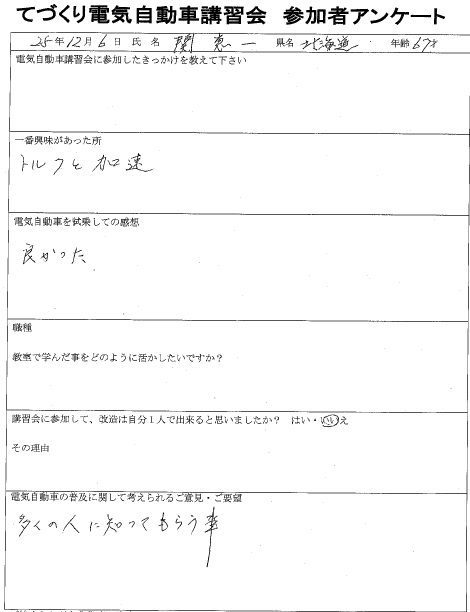 てづくり電気自動車講習会 参加者アンケート
25年12月6日 氏名 関 恵一 県名 北海道 年齢 67才
電気自動車講習会に参加したきっかけを教えて下さい
一番興味があった所
トルクと加速
電気自動車を試乗しての感想
良かった
職種
教室で学んだ事をどのように活かしたいですか?
講習会に参加して、改造は自分1人で出来ると思いましたか? はい・いいえ
その理由
電気自動車の普及に関して考えられるご意見・ご要望
多くの人に知ってもらう事